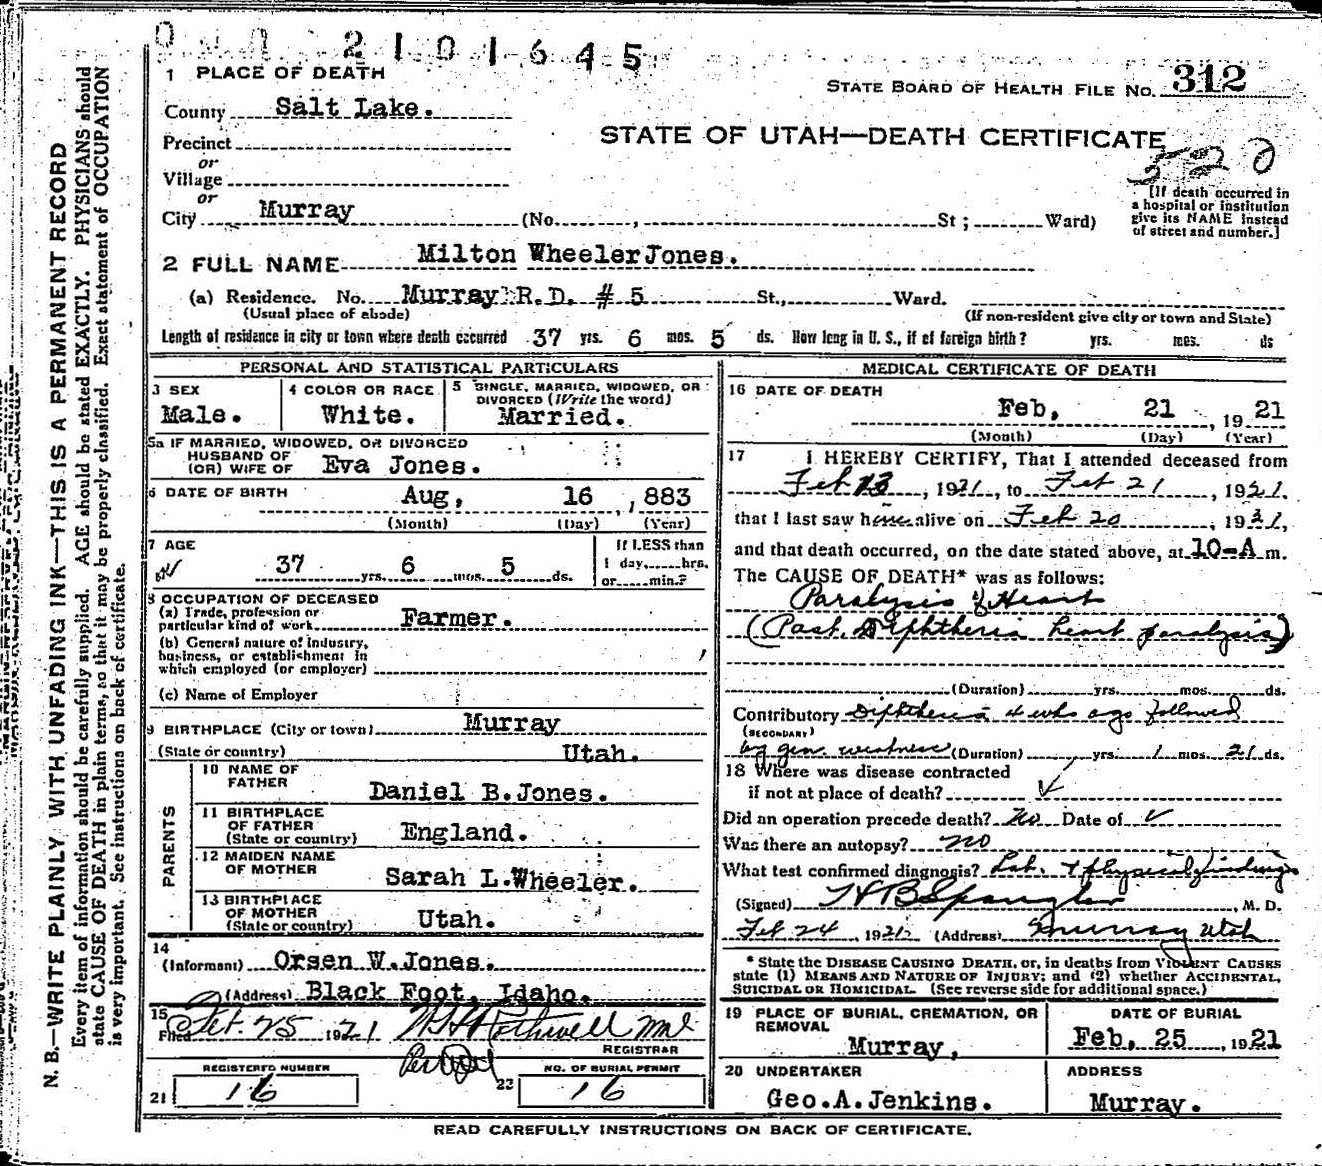 2101645
1 PLACE OF DEATH
STATE BOARD OF HEALTH FILE NO. 312
County Salt Lake.
STATE OF UTAH—DEATH CERTIFICATE
520
Precinct
or
Village
or
City Murray (No. , St ; Ward)
[If death occurred in
a hospital or institution
give its NAME instead
of street and number.]
2 FULL NAME Milton Wheeler Jones.
(a) Residence. No. Murray R.D. # 5 St., Ward.
(Usual place of abode) (If non-resident give city or town and State)
Length of residence in city or town where death occurred 37 yrs. 6 mos. 5 ds. How long in U. S., if of foreign birth? yrs. mos. ds
PERSONAL AND STATISTICAL PARTICULARS
3 SEX Male.
4 COLOR OR RACE White.
5 SINGLE, MARRIED, WIDOWED, OR
DIVORCED (Write the word)
Married.
5a IF MARRIED, WIDOWED, OR DIVORCED
HUSBAND OF
(OR) WIFE OF Eva Jones.
6 DATE OF BIRTH Aug, 16 , 1883
(Month) (Day) (Year)
7 AGE 37 yrs. 6 mos. 5 ds.
If LESS than
1 day, hrs.
or min.?
8 OCCUPATION OF DECEASED
(a) Trade, profession or
particular kind of work Farmer.
(b) General nature of industry,
business, or establishment in
which employed (or employer)
(c) Name of Employer
9 BIRTHPLACE (City or town) Murray
(State or country) Utah.
PARENTS
10 NAME OF
FATHER Daniel B.Jones.
11 BIRTHPLACE
OF FATHER
(State or country) England.
12 MAIDEN NAME
OF MOTHER Sarah L.Wheeler.
13 BIRTHPLACE
OF MOTHER
(State or country) Utah.
14
(Informant) Orsen W.Jones.
(Address) Black Foot, Idaho.
15
Filed Feb. 25 1921 Rothwell MD
REGISTRAR
Per
REGISTERED NUMBER
21 16
NO. OF BURIAL PERMIT
22 16
MEDICAL CERTIFICATE OF DEATH
16 DATE OF DEATH
Feb, 21 , 1921
(Month) (Day) (Year)
17 I HEREBY CERTIFY, That I attended deceased from
Feb 13 , 1921, to Feb 21 , 1921.
that I last saw him alive on Feb 20 , 1921,
and that death occurred, on the date stated above, at 10-A m.
The CAUSE OF DEATH* was as follows:
Paralysis of Heart
(Post Diphtheria heart paralysis)
(Duration) yrs. mos. ds.
Contributory Diphtheria 4 wks ago followed
(SECONDARY)
by gen. weakness (Duration) yrs. 1 mos. 21 ds.
18 Where was disease contracted
if not at place of death?
Did an operation precede death? No Date of
Was there an autopsy? no
What test confirmed diagnosis? Lab. + physical findings
(Signed) H B Spangler , M. D.
Feb 24 , 1921 (Address) Murray Utah
* State the DISEASE CAUSING DEATH, or, in deaths from VIOLENT CAUSES
state (1) MEANS AND NATURE OF INJURY; and (2) whether ACCIDENTAL,
SUICIDAL OR HOMICIDAL. (See reverse side for additional space.)
19 PLACE OF BURIAL, CREMATION, OR
REMOVAL
Murray,
DATE OF BURIAL
Feb, 25 , 1921
20 UNDERTAKER
Geo.A.Jenkins.
ADDRESS
Murray.
READ CAREFULLY INSTRUCTIONS ON BACK OF CERTIFICATE.
N. B.—WRITE PLAINLY WITH UNFADING INK—THIS IS A PERMANENT RECORD
Every item of information should be carefully supplied. AGE should be stated EXACTLY. PHYSICIANS should
state CAUSE OF DEATH in plain terms, so that it may be properly classified. Exact statement of OCCUPATION
is very important. See instructions on back of certificate.